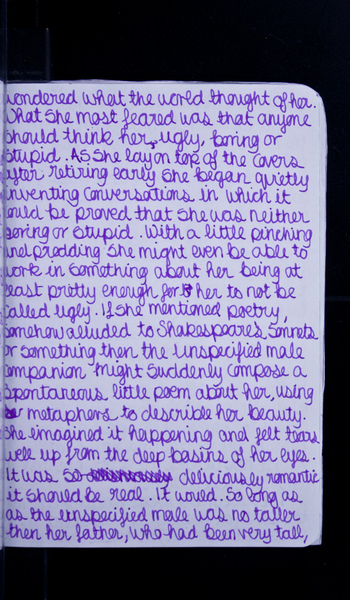 wondered what the world thought of her.
What she most feared was that anyone
should think her, ugly, boring or
stupid. As she lay on top of the covers
after retiring early she began quietly
inventing conversations in which it
ould be proved that she was neither
boring or stupid. With a little pinching
and prodding she might even be able to
work in something about her being at
least pretty enough for her to not be
called ugly. If she mentioned poetry,
somehow alluded to Shakespeare's sonnets
or something then the unspecified male
companion might suddenly compose a
spontaneous little poem about her, using
metaphers to describe her beauty.
She eimagined it happening and felt tears
well up from the deep basins of her eyes.
It was so deliciously romantic
it should be real. It would. So long as
as the unspecified male was no taller
then her father, who had been very tall,